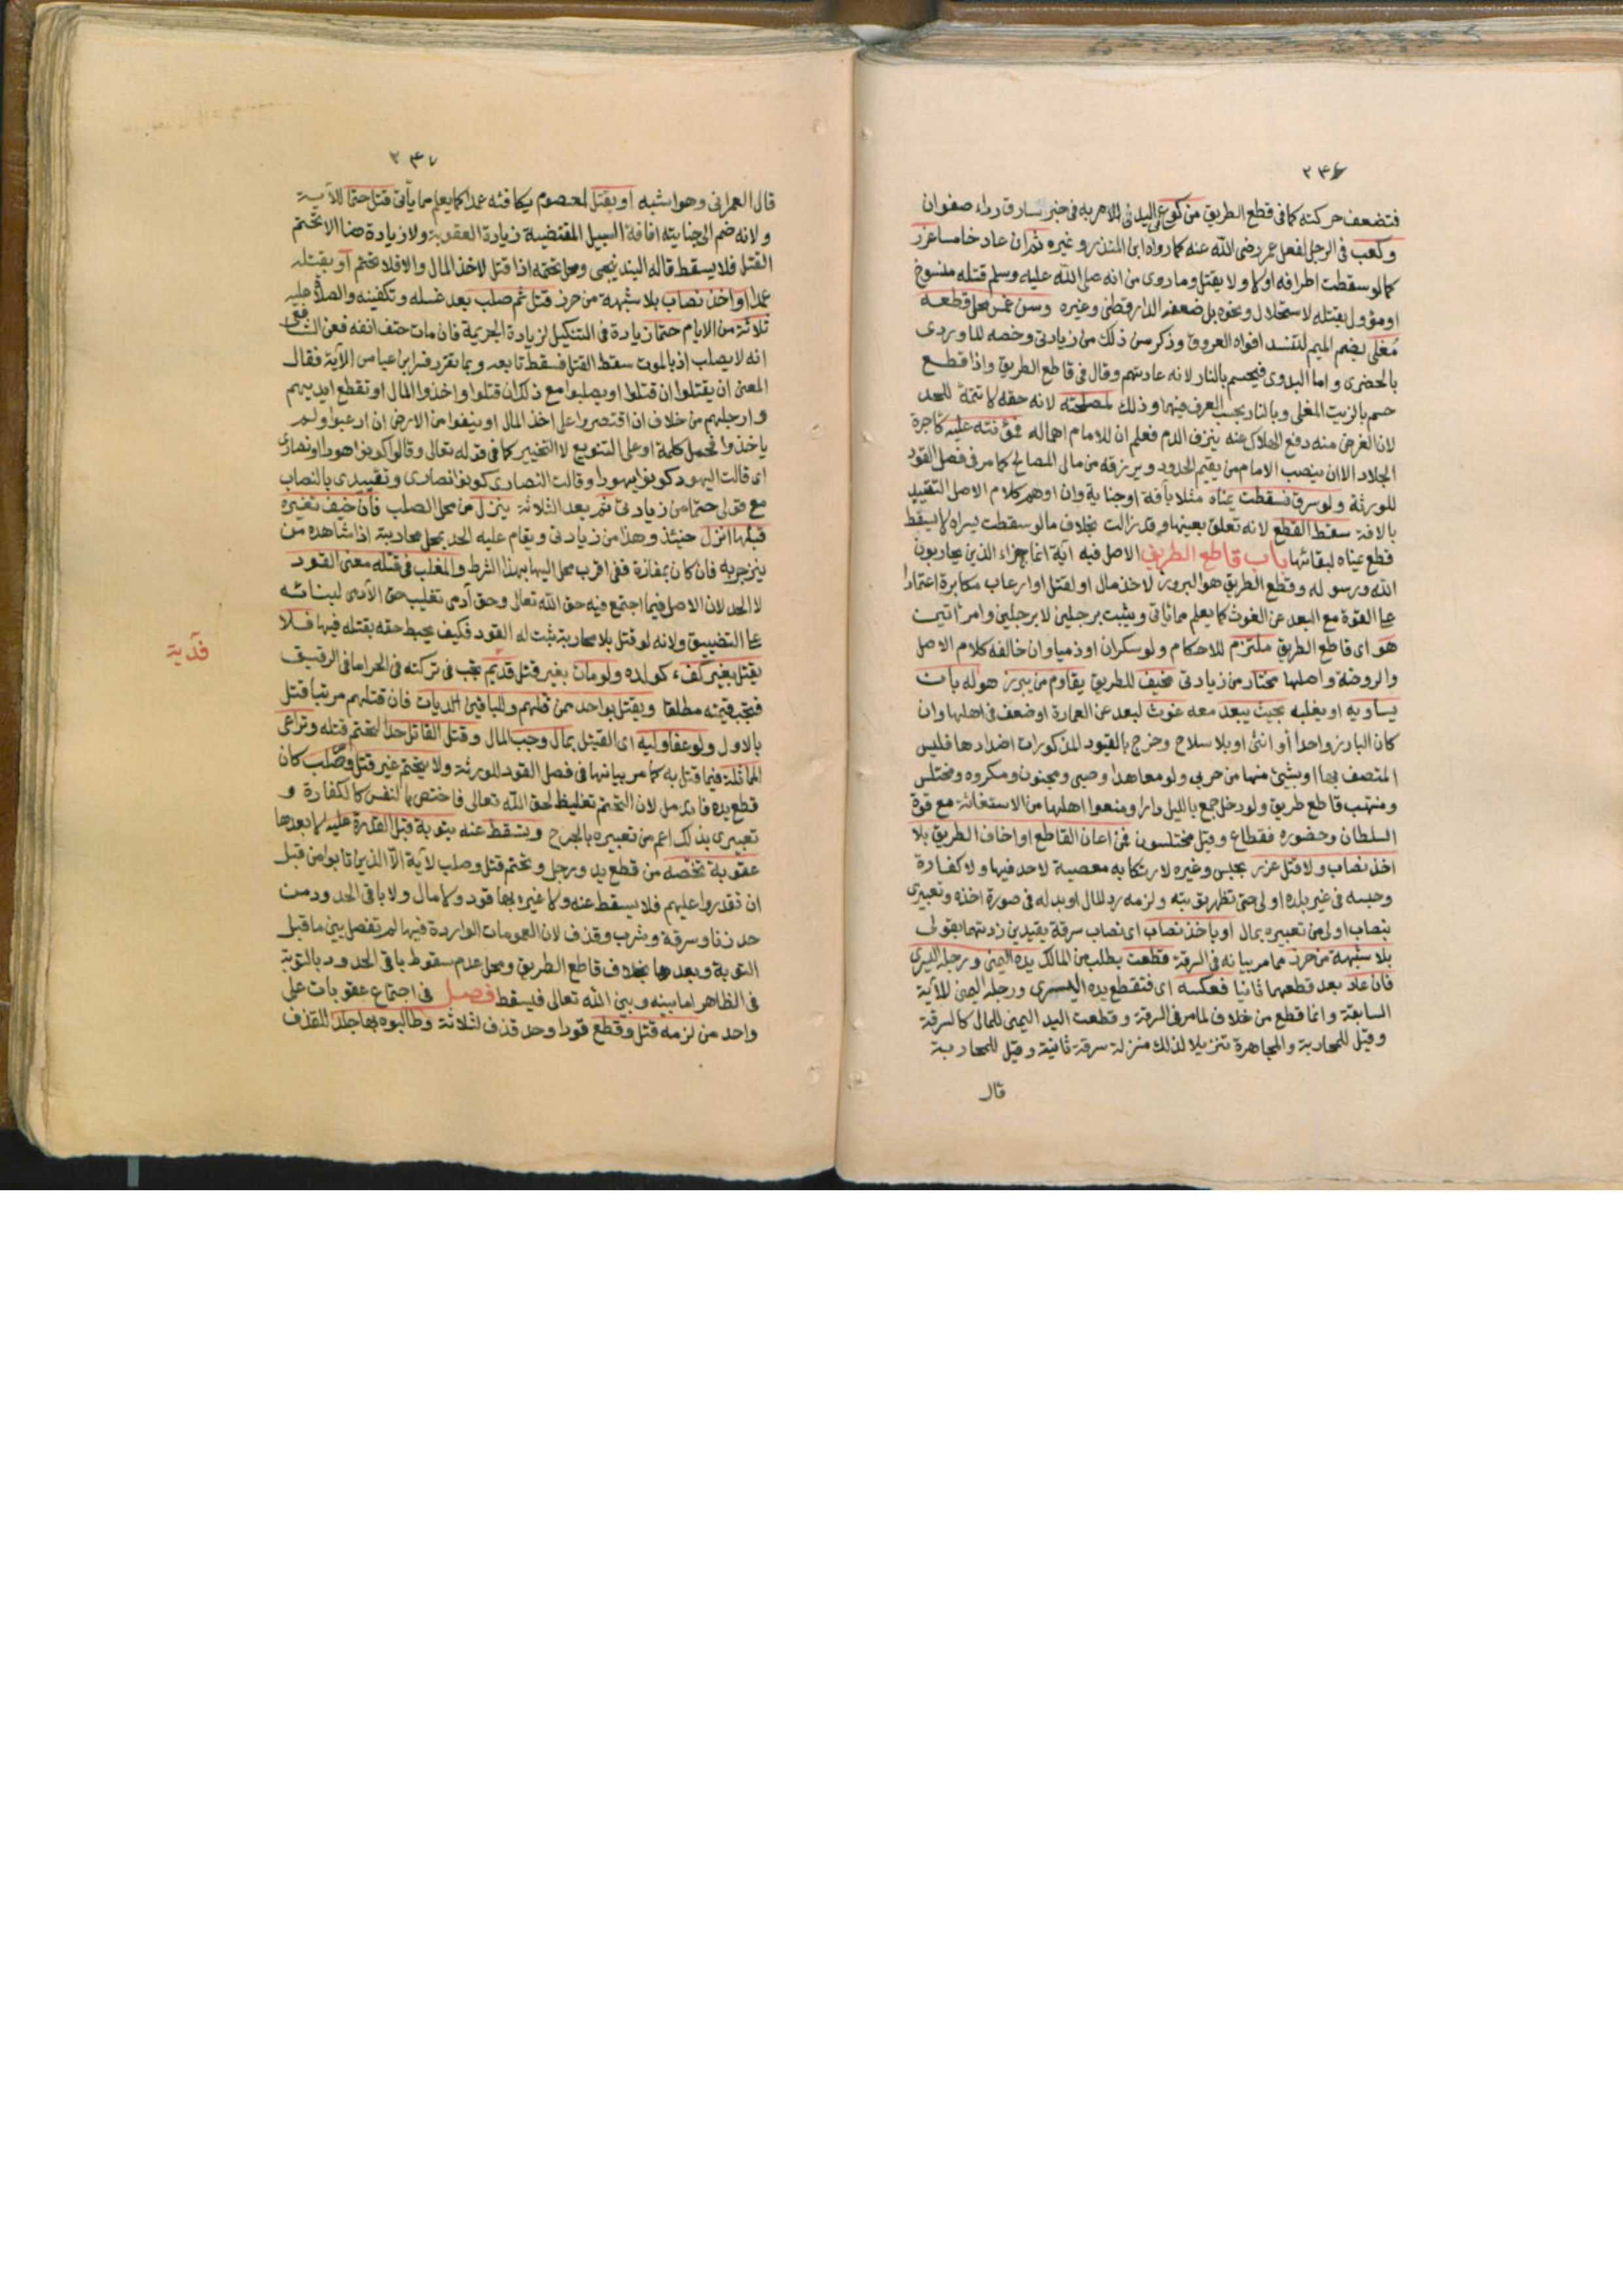 ٢٤٦
فتضعف حركته كما في قطع الطريق من كوع في اليد للامر به في خبر سارق رداء صفوان
وكعب في الرجل لفعل عمر رضى الله عنه كما رواه ابن المنذر وغيره ثم ان عاد خامسا عزر
كما لو سقطت اطرافه اولا ولا يقتل وما روى من انه صلى الله عليه وسلم قتله منسوخ
او مؤول بقتله لاستحلال ونحوه بل ضعفه الدارقطنى وغيره وسن غمس محل قطعه
مُغلى بضم الميم لتنسد افواه العروق وذكر سن ذلك من زيادتى وخصه الماوردى
بالحضرى واما البدوى فيحسم بالنار لانه عادتهم وقال في قاطع الطريق واذا قطع
حسم بالزيت المغلى وبالنار بحسب العرف فيهما وذلك لمصلحته لانه حقه لا تتمة للحد
لان الغرض منه دفع الهلاك عنه بنزف الدم فعلم ان للامام اهماله فمؤنته عليه كاجرة
الجلاد الا ان ينصب الامام من يقيم الحدود ويرزقه من مال المصالح كما مر في فصل القود
للورثة ولو سرق فسقطت يمناه مثلا بآفة او جناية وان اوهم كلام الاصل التقييد
بالافة سقط القطع لانه تعلق بعينها وقد زالت بخلاف ما لو سقطت يسراه لا يسقط
قطع يمناه لبقائها باب قاطع الطريق الاصل فيه آية انما جزاء الذين يحاربون
الله ورسوله وقطع الطريق هو البروز لاخذ مال او لقتل او ارعاب مكابرة اعتمادا
على القوة مع البعد عن الغوث كما يعلم مما يأتى ويثبت برجلين لا برجلين وامرأتين
هو اى قاطع الطريق ملتزم للاحكام ولو سكران او ذميا وان خالفه كلام الاصل
والروضة واصلها مختار من زيادتى مخيف للطريق يقاوم من يبرز هو له بان
يساويه او يغلبه بحيث يبعد معه غوث لبعد عن العمارة او ضعف في اهلها وان
كان البارز واحدا أو انثى او بلا سلاح وخرج بالقيود المذكورات اضدادها فليس
المتصف بها او بشيئ منها من حربى ولو معاهدا وصبى ومجنون ومكروه ومختلس
ومنتهب قاطع طريق ولو دخل جمع بالليل دارا ومنعوا اهلها من الاستغاثة مع قوة
السلطان وحضوره فقطاع وقيل مختلسون فمن اعان القاطع او اخاف الطريق بلا
اخذ نصاب ولا قتل عزر بحبس وغيره لارتكابه معصية لا حد فيها ولا كفارة
وحبسه في غير بلده اولى حتى تظهر توبته ولزمه رد المال او بدله في صورة اخذه وتعبيرى
بنصاب اولى من تعبيره بمال او باخذ نصاب اى نصاب سرقة بقيدين زدتهما بقولى
بلا شبهة من حرز مما مر بيانه في السرقة قطعت بطلب من المالك يده اليمنى ورجله اليسرى
فان عاد بعد قطعهما ثانيا فعكسه اى فتقطع يده اليسرى ورجله اليمنى للآية
السابقة وانما قطع من خلاف لما مر في السرقة وقطعت اليد اليمنى للمال كالسرقة
وقيل للمحاربة والمجاهرة تنزيلا لذلك منزلة سرقة ثانية وقيل للمحاربة
قال
٢٤٧
قال العمرانى وهو اشبه او بقتل لمعصوم يكافئه عمدا كما يعلم مما يأتى قتل حتما للآية
ولانه ضم الى جنايته اخافة السبيل المقتضية زيادة العقوبة ولا زيادة هنا الا تحتم
القتل فلا يسقط قاله البندنيجى ومحل تحتمه اذا قتل لاخذ المال والا فلا تحتم او بقتله
عمدا واخذ نصاب بلا شبهة من حرز قتل ثم صلب بعد غسله وتكفينه والصلاة عليه
ثلاثة من الايام حتما زيادة في التنكيل لزيادة الجريمة فان مات حتف انفه فعن الشافعى
انه لا يصلب اذ بالموت سقط القتل فسقط تابعه وبما تقرر فسر ابن عباس الآية فقال
المعنى ان يقتلوا ان قتلوا او يصلبوا مع ذلك ان قتلوا واخذوا المال او تقطع ايديهم
وارجلهم من خلاف ان اقتصروا على اخذ المال او ينفوا من الارض ان ارعبوا ولم
ياخذوا فحمل كلمة او على التنويع لا التخيير كما في قوله تعالى وقالوا كونوا هودا او نصارى
اى قالت اليهود كونوا يهودا وقالت النصارى كونوا نصارى وتقييدى بالنصاب
مع قولى حتما من زيادتى ثم بعد الثلاثة ينزل من محل الصلب فان خيف تغيره
قبلها انزل حينئذ وهذا من زيادتى ويقام عليه الحد بمحل محاربته اذا شاهده من
ينزجر به فان كان بمفازة ففى اقرب محل اليها بهذا الشرط والمغلب في قتله معنى القود
لا الحد لان الاصل فيما اجتمع فيه حق الله تعالى وحق آدمى تغليب حق الآدمى لبنائه
على التضييق ولانه لو قتل بلا محاربة ثبت له القود فكيف يحبط حقه بقتله فيها فلا
يقتل بغير كفء كولده ولو مات بغير قتل فدية تجب في تركته في الحر اما في الرقيق
فدية
فتجب قيمته مطلقا ويقتل بواحد ممن قتلهم وللباقين الديات فان قتلهم مرتبا قتل
بالاول ولو عفا وليه اى القتيل بمال وجب المال وقتل القاتل حدا لتحتم قتله وتراعى
المماثلة فيما قتل به كما مر بيانها في فصل القود للورثة ولا يتحتم غير قتل وصلب كان
قطع يده فاندمل لان التحتم تغليظ لحق الله تعالى فاختص بالنفس كالكفارة و
تعبيرى بذلك اعم من تعبيره بالجرح وتسقط عنه بتوبة قبل القدرة عليه لا بعدها
عقوبة تخصه من قطع يد ورجل وتحتم قتل وصلب لآية الا الذين تابوا من قبل
ان تقدروا عليهم فلا يسقط عنه ولا غيره بها قود ولا مال ولا باقى الحدود من
حد زنا وسرقة وشرب وقذف لان العمومات الواردة فيها لم تفصل بين ما قبل
التوبة وبعدها بخلاف قاطع الطريق ومحل عدم سقوط باقى الحدود بالتوبة
في الظاهر اما بينه وبين الله تعالى فيسقط فصل في اجتماع عقوبات على
واحد من لزمه قتل وقطع قودا وحد قذف لثلاثة وطالبوه بها جلد للقذف